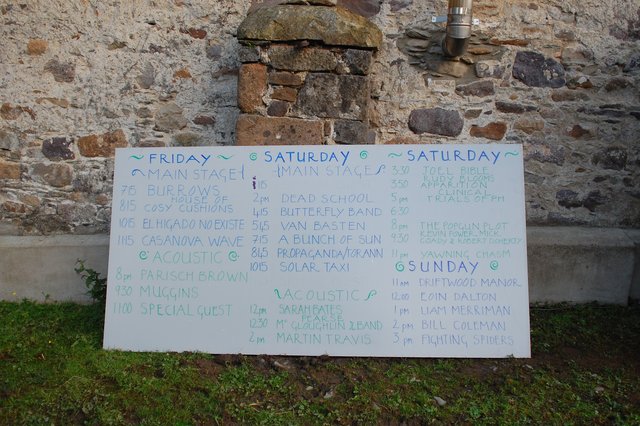 ~ FRIDAY ~
MAIN STAGE
7 15 BURROWS
HOUSE OF
8 15 COSY CUSHIONS
10 15 EL HIGADO NO EXISTE
11 15 CASANOVA WAVE
ACOUSTIC
8 pm PARISCH BROWN
9 30 MUGGINS
11 00 SPECIAL GUEST
SATURDAY
MAIN STAGE
1 15
2 pm DEAD SCHOOL
4 15 BUTTERFLY BAND
5 45 VAN BASTEN
7 15 A BUNCH OF SUN
8 45 PROPAGANDA/TORANN
10 15 SOLAR TAXI
ACOUSTIC
12 pm SARAH BATES
PEARSE
12 30 Mc GLOUGHLIN & BAND
2 pm MARTIN TRAVIS
~ SATURDAY ~
3 30 JOEL BIBLE
RUDY BLOOMS
3 50 APPARITION
CLINICAL
5 pm TRIALS OF PM
6 30
8 pm THE POPGUN PLOT
KEVIN POWER, MICK
9 30 COADY & ROBERT DOHERTY
11 pm YAWNING CHASM
SUNDAY
11 am DRIFTWOOD MANOR
12 00 EOIN DALTON
1 pm LIAM MERRIMAN
2 pm BILL COLEMAN
3 pm FIGHTING SPIDERS